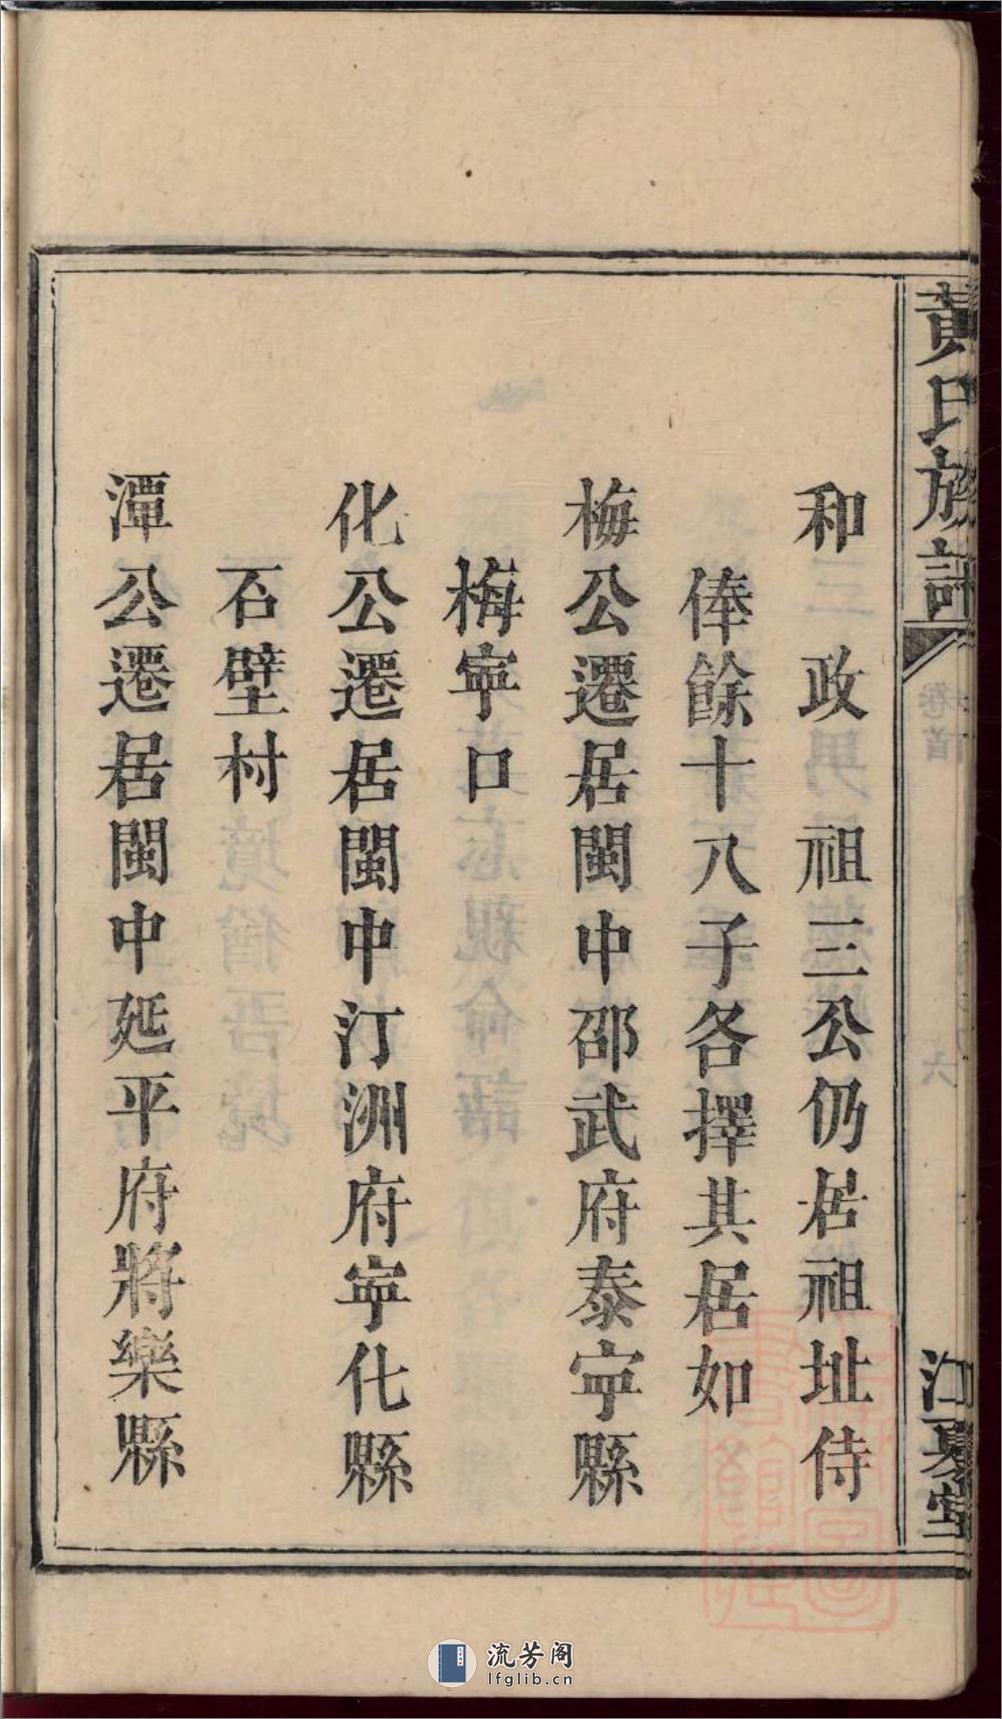 黃氏族譜
江夏堂
和 政 祖三公仍居祖址侍
俸餘十八子各擇其居如
梅公遷居閩中邵武府泰寕縣
梅寕口
化公遷居閩中汀洲府寕化縣
石壁村
潭公遷居閩中延平府將樂縣
流芳阁
lfglib.cn